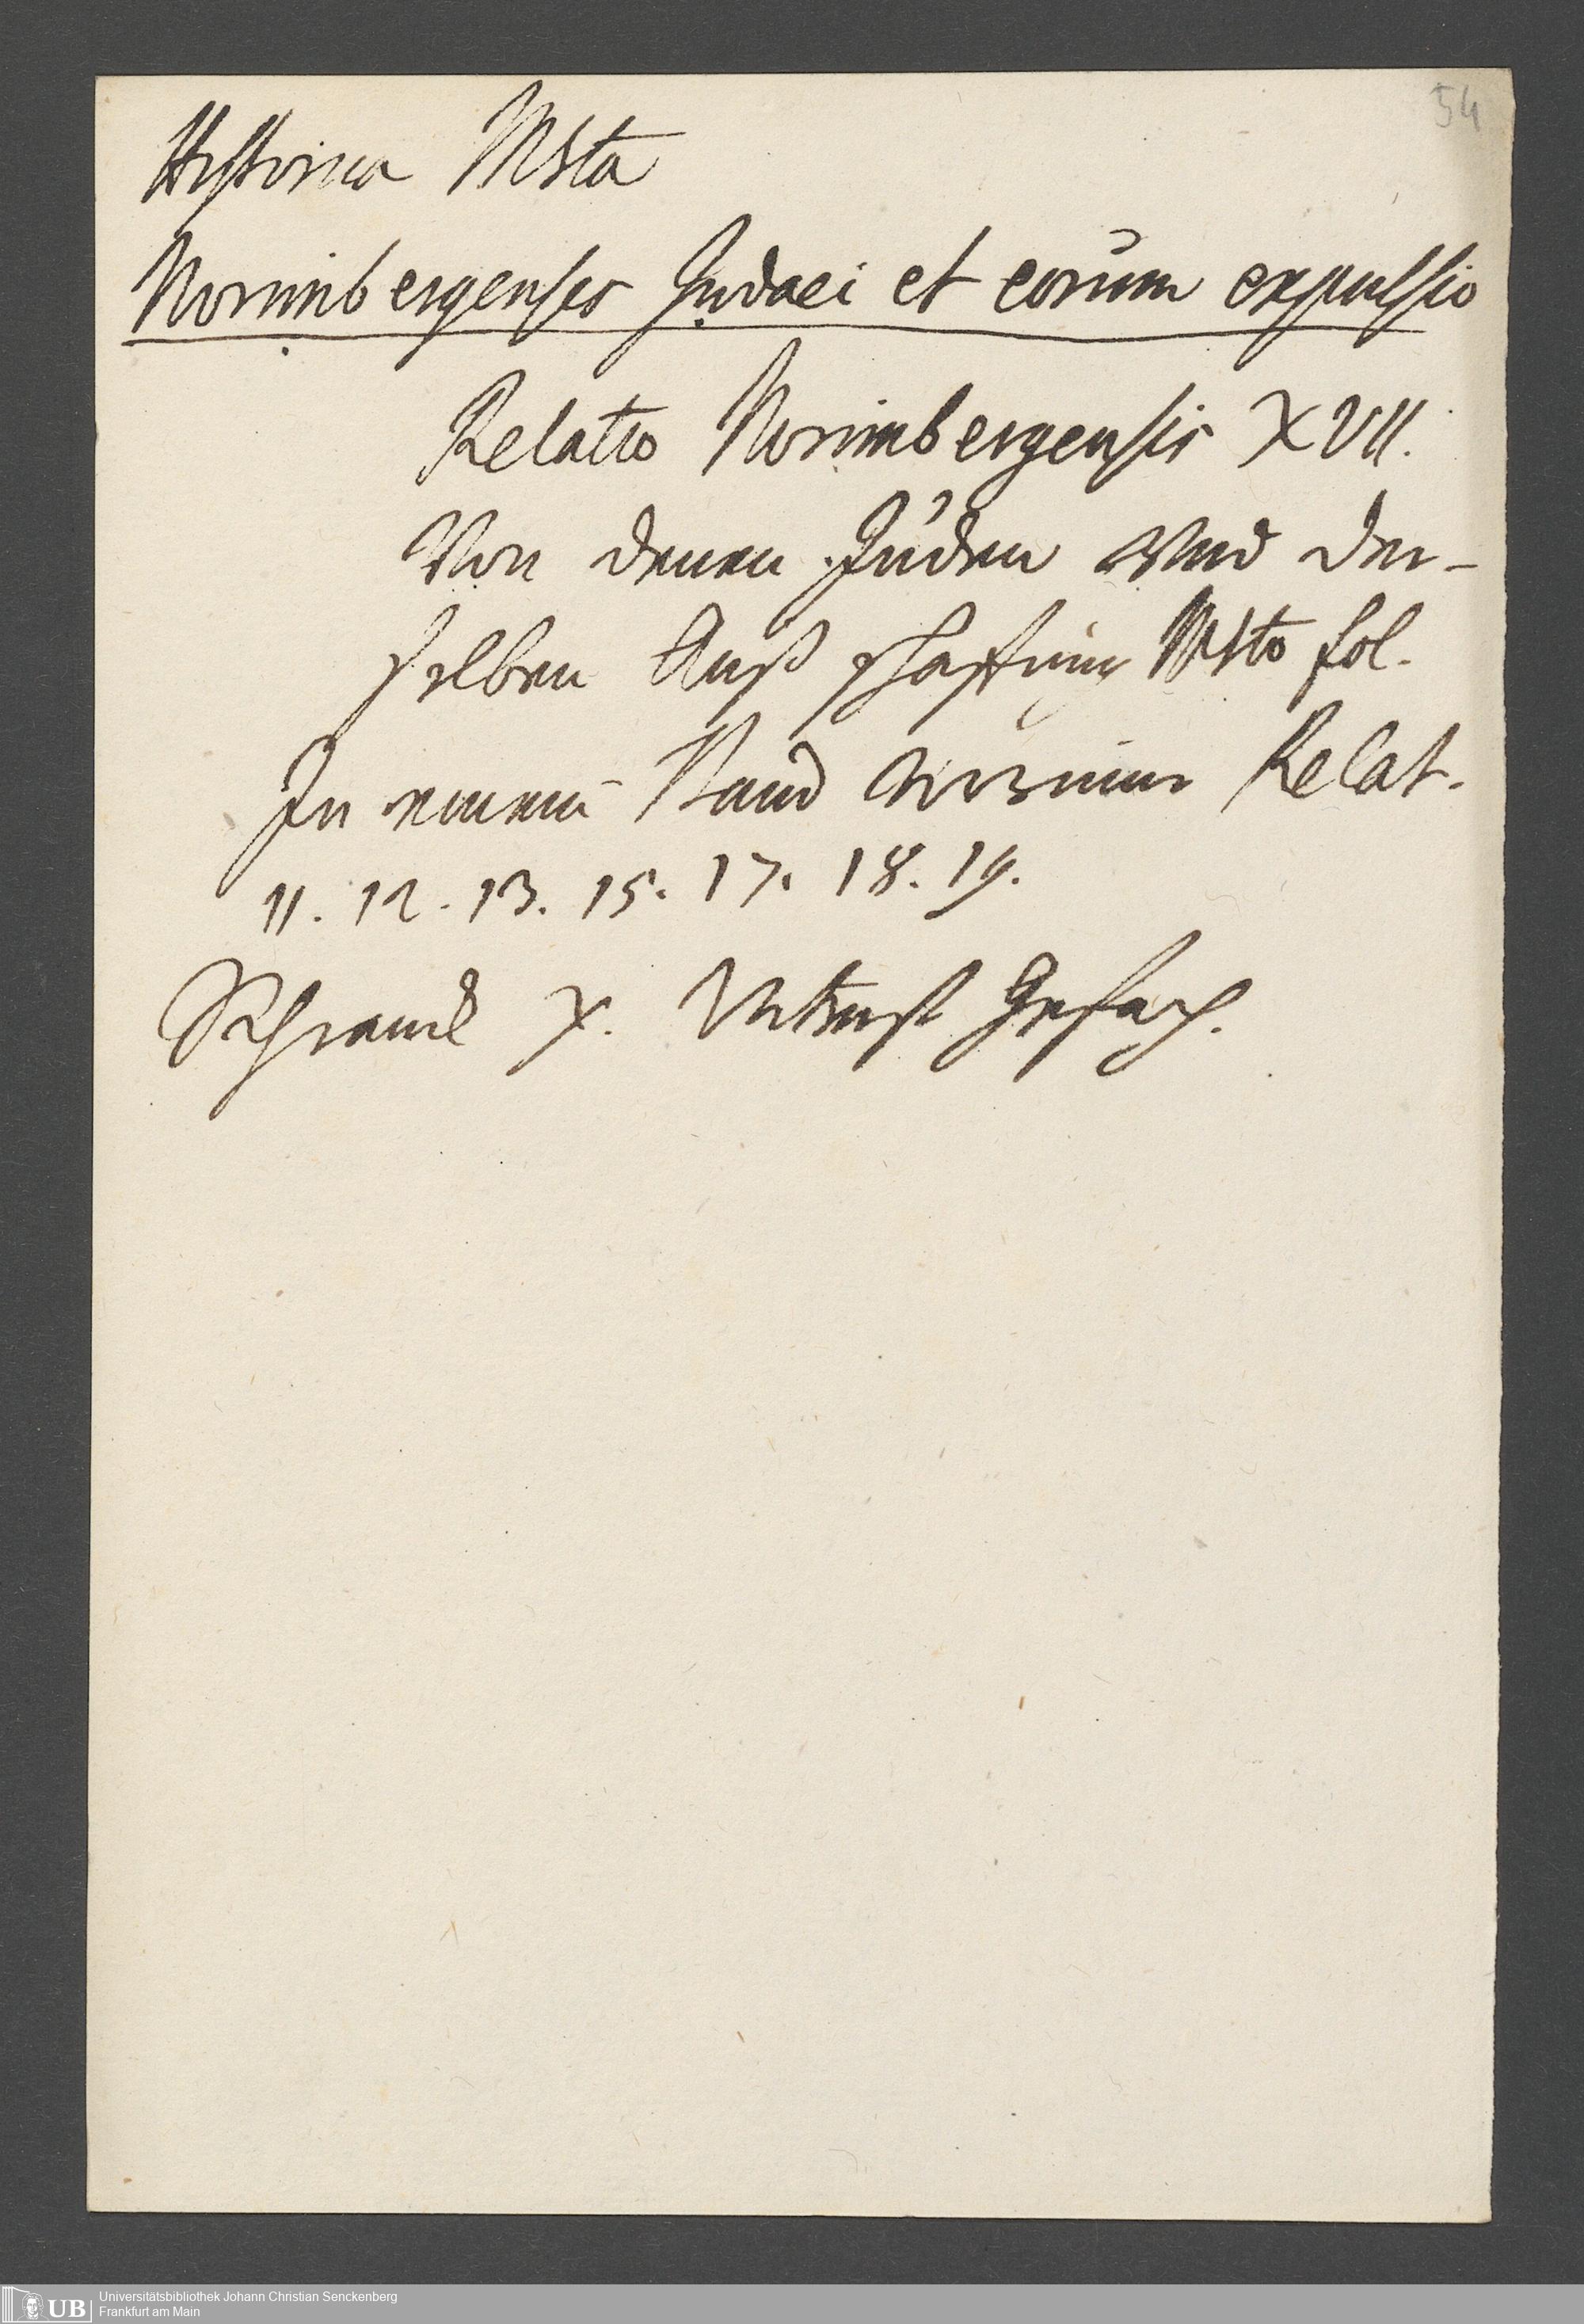 54
Historica Msta
Norimbergenses Judaei et eorum expulsio
Relatio Norimbergensis XVII.
Von denen Jüden vnd der-
selben Auß schaffung Msto fol.
In einem Band Relat.
11. 12. 13. 15. 17. 18. 19.
Schranck X. Unterst Gefach.
Universitätsbibliothek Johann Christian Senckenberg
UB Frankfurt am Main